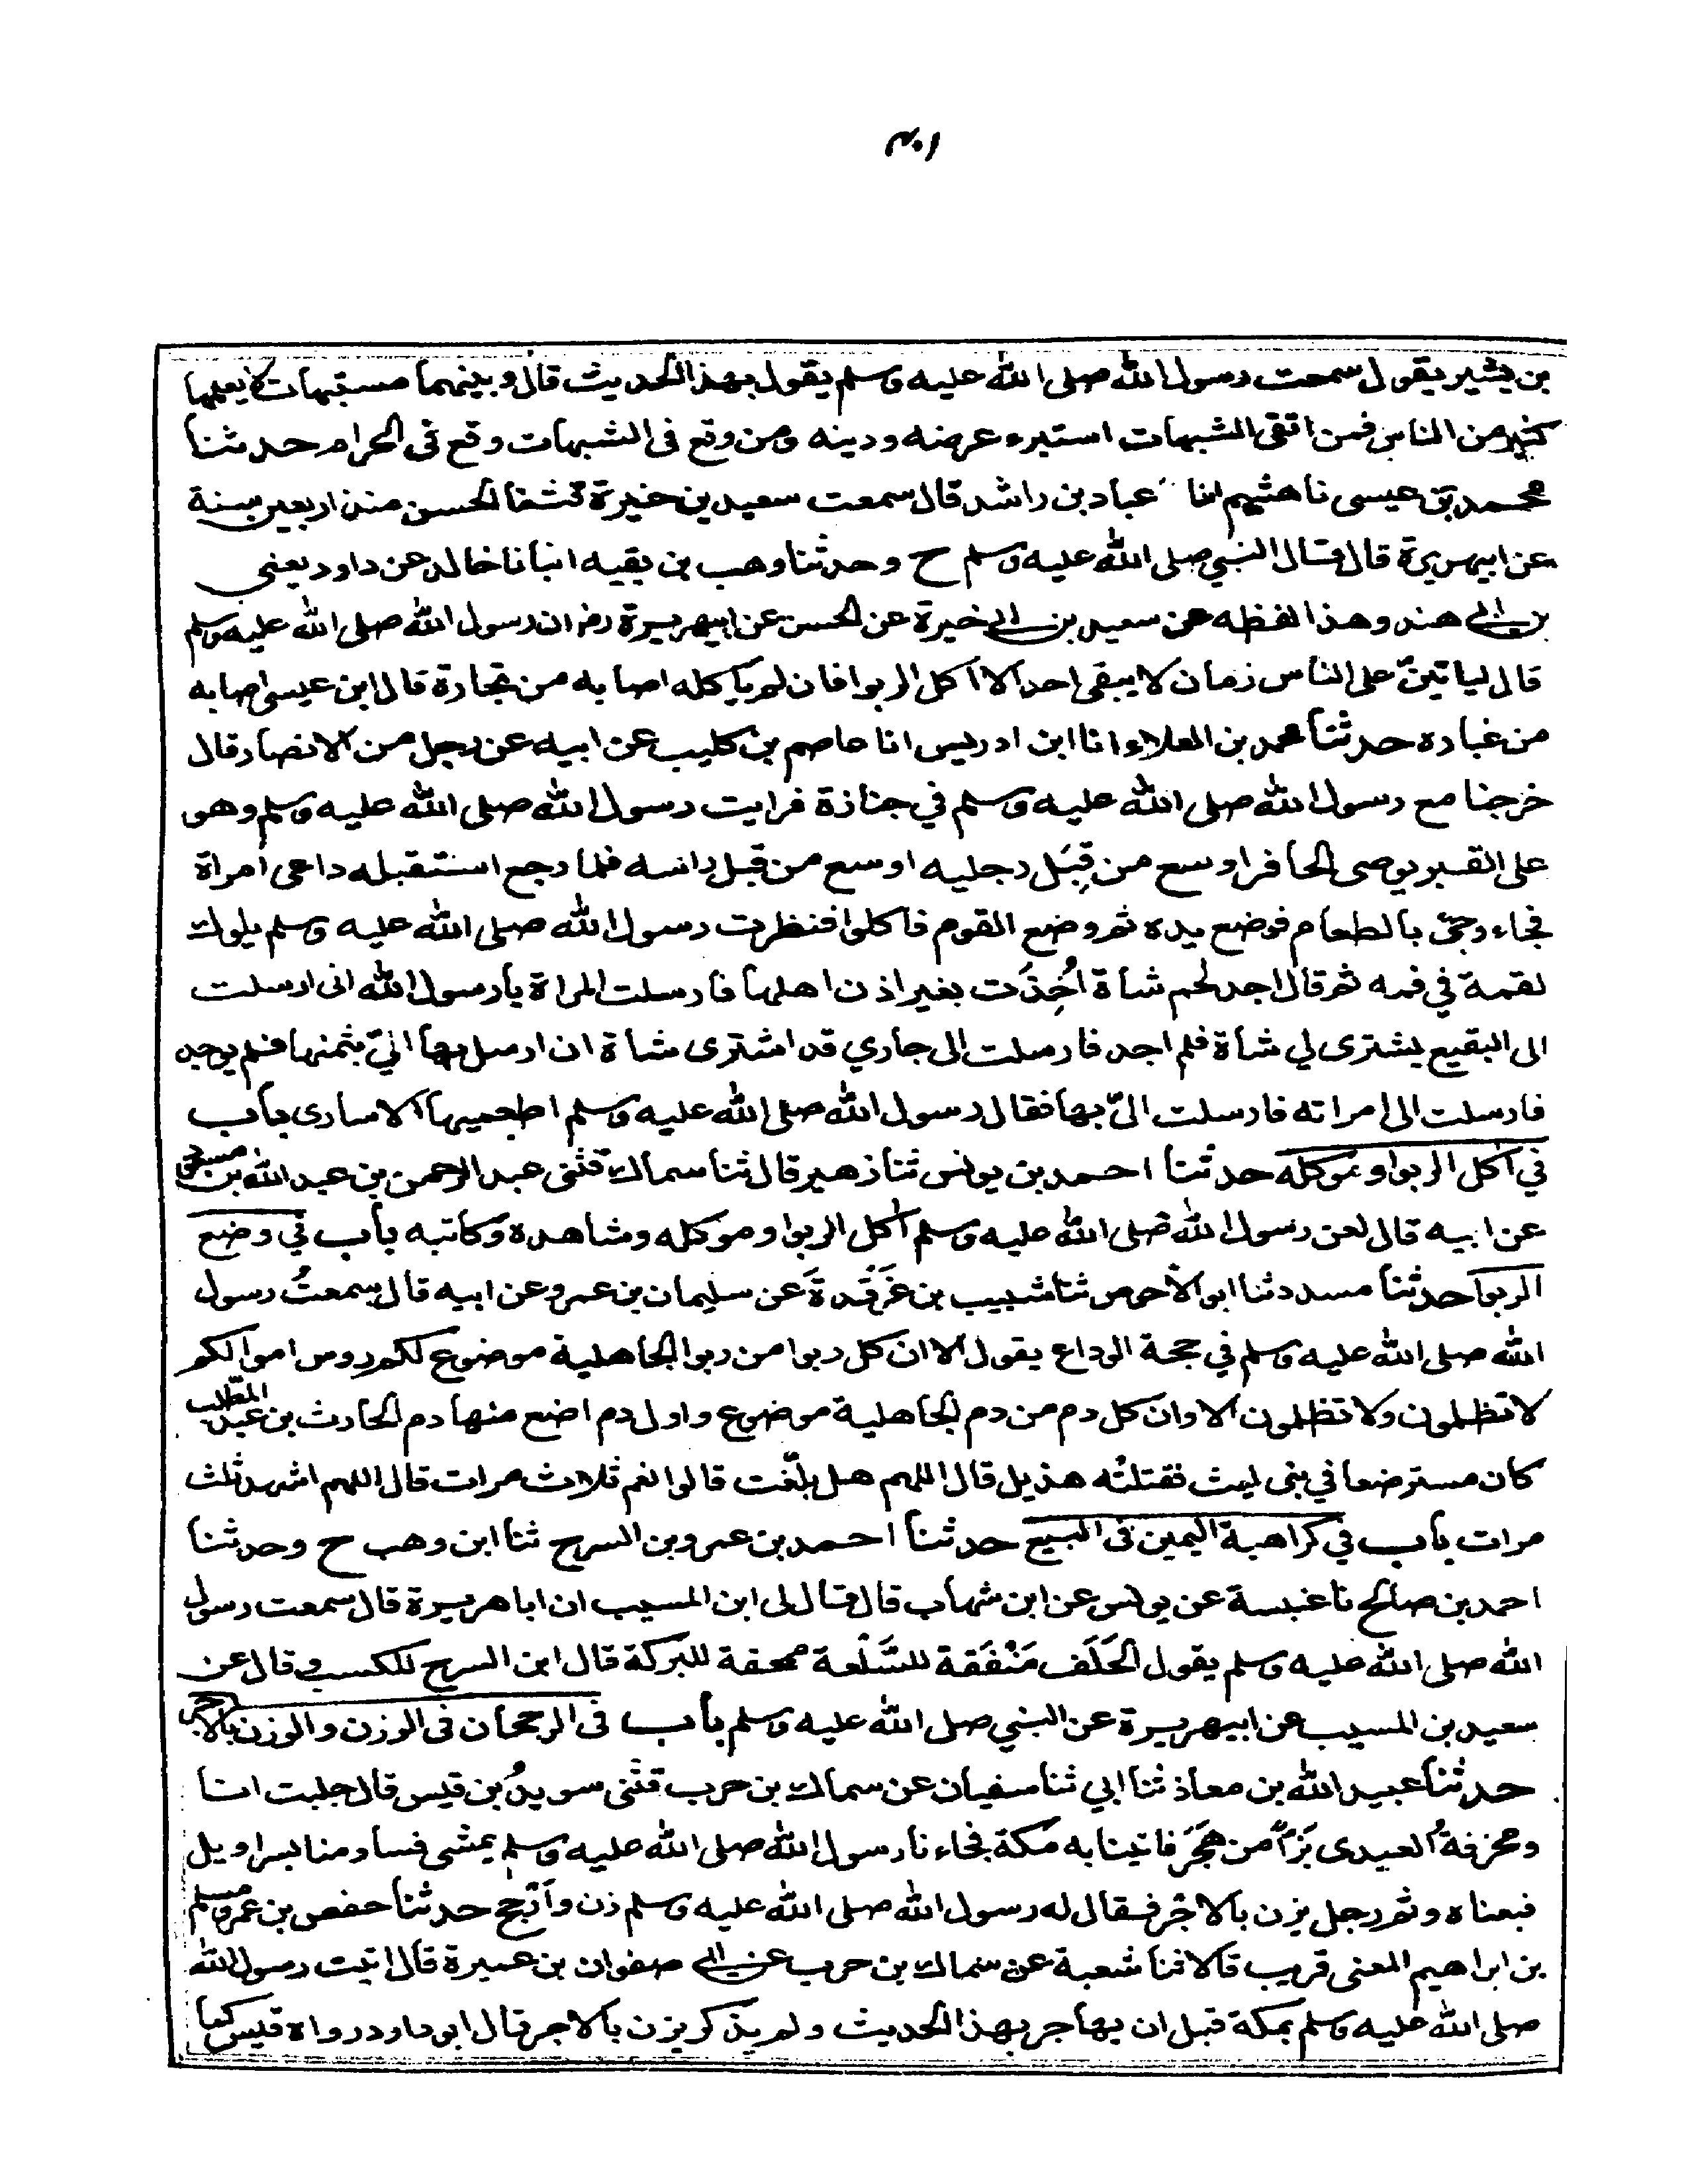 ٣٠١
بن بشير يقول سمعت رسول الله صلى الله عليه وسلم يقول بهذا الحديث قال وبينهما مشتبهات لا يعلمها
كثير من الناس فمن اتقى الشبهات استبرء عرضه ودينه ومن وقع فى الشبهات وقع فى الحرام حدثنا
محمد بن عيسى نا هشيم انا عباد بن راشد قال سمعت سعيد بن خيرة قثنا الحسن منذ اربعين سنة
عن ابيهريرة قال قال النبي صلى الله عليه وسلم ح وحدثنا وهب بن بقيه انبانا خالد عن داود يعنى
بن ابي هند وهذا لفظه عن سعيد بن ابي خيرة عن الحسن عن ابيهريرة رضـ ان رسول الله صلى الله عليه وسلم
قال لياتينّ على الناس زمان لا يبقى احد الا اكل الربوا فان لم ياكله اصابه من بخارة قال ابن عيسى اصابه
من غباره حدثنا محمد بن العلاء انا ابن ادريس انا عاصم بن كليب عن ابيه عن رجل من الانصار قال
خرجنا مع رسول الله صلى الله عليه وسلم في جنازة فرايت رسول الله صلى الله عليه وسلم وهو
على القبر يوصى الحافر اوسع من قِبَل رجليه اوسع من قبل راسه فلما رجع استقبله داعى امراة
فجاء وجئ بالطعام فوضع يده ثم وضع القوم فاكلوا فنظرت رسول الله صلى الله عليه وسلم يلوك
لقمة في فمه ثم قال اجد لحم شاة اُخِذَت بغير اذن اهلها فارسلت المراة يا رسول الله انى ارسلت
الى البقيع يشترى لي شاة فلم اجد فارسلت الى جاري قد اشترى شاة ان ارسل بها اليّ بثمنها فلم يوجد
فارسلت الى امراته فارسلت اليّ بها فقال رسول الله صلى الله عليه وسلم اطعميها الاسارى باب
في اكل الربوا وموكله حدثنا احمد بن يونس ثنا زهير قال ثنا سماك قثنى عبد الرحمن بن عبد الله بن مسعود
عن ابيه قال لعن رسول الله صلى الله عليه وسلم آكل الربوا وموكله وشاهده وكاتبه باب في وضع
الربوا حدثنا مسدد ثنا ابو الاحوص ثنا شبيب بن غَرقَدةَ عن سليمان بن عمرو عن ابيه قال سمعتُ رسول
الله صلى الله عليه وسلم في حجة الوداع يقول الا ان كل ربوا من ربوا الجاهلية موضوع لكم روس اموالكم
لا تظلمون ولا تظلمون الا وان كل دم من دم الجاهلية موضوع واول دم اضع منها دم الحارث بن عبد المطلب
كان مسترضعا في بنى ليث فقتلتْه هذيل قال اللهم هل بلّغت قالوا نعم ثلاث مرات قال اللهم اشهد ثلث
مرات باب في كراهية اليمين فى البيع حدثنا احمد بن عمرو بن السرح ثنا ابن وهب ح وحدثنا
احمد بن صالح نا عنبسة عن يونس عن ابن شهاب قال قال لى ابن المسيب ان ابا هريرة قال سمعت رسول
الله صلى الله عليه وسلم يقول الحَلَف مَنْفَقة للسَّلْعة ممحقة للبركة قال ابن السرح للكسب وقال عن
سعيد بن المسيب عن ابيهريرة عن النبي صلى الله عليه وسلم باب فى الرجحان فى الوزن والوزن بالاجر
حدثنا عبيد الله بن معاذ ثنا ابي ثنا سفيان عن سماك بن حرب قثنى سويدُ بن قيس قال جلبت انا
ومخرفةُ العبدى بَزّاً من هَجَرَ فاتينا به مكة فجاءنا رسول الله صلى الله عليه وسلم يمشى فساومنا بسراويل
فبعناه وثم رجل يزن بالاجر فقال له رسول الله صلى الله عليه وسلم زن وارجح حدثنا حفص بن عمر ومسلم
بن ابراهيم المعنى قريب قالا ثنا شعبة عن سماك بن حرب عن ابي صفوان بن عميرة قال اتيت رسول الله
صلى الله عليه وسلم بمكة قبل ان يهاجر بهذا الحديث ولم يذكر يزن بالاجر قال ابو داود رواه قيس كما